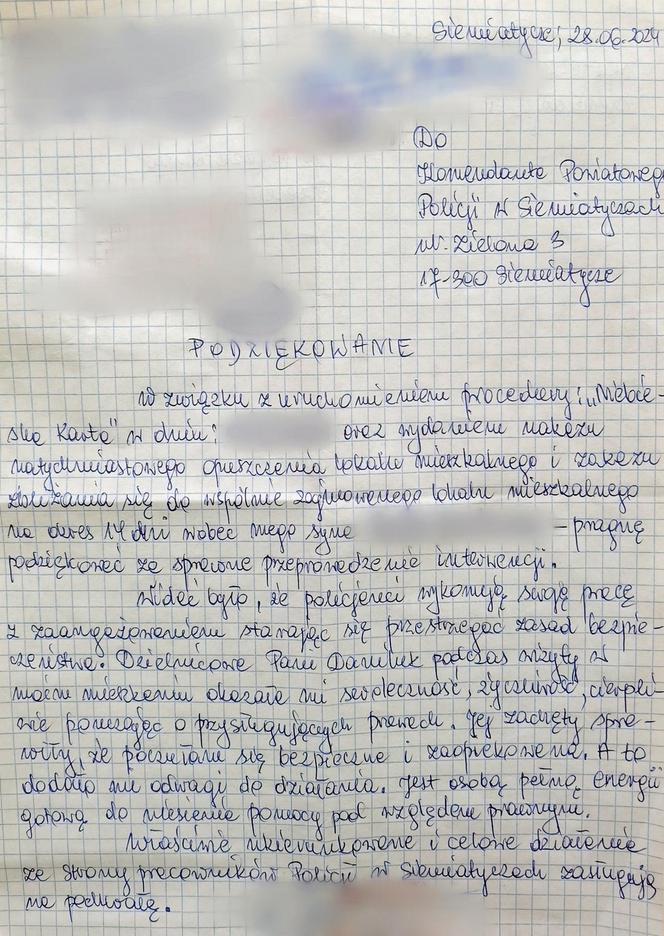 Siemiatycze, 28.06.2024
Do
Komendanta Powiatowego
Policji w Siemiatyczach
ul. Zielona 3
17-300 Siemiatycze
PODZIĘKOWANIE
W związku z uruchomieniem procedury: „Niebie-
ska Karta" w dniu: oraz wydaniem nakazu
natychmiastowego opuszczenia lokalu mieszkalnego i zakazu
zbliżania się do wspólnie zajmowanego lokalu mieszkalnego
na okres 14 dni wobec mego syna – pragnę
podziękować za sprawne przeprowadzenie interwencji.
Widać było, że policjanci wykonują swoją pracę
z zaangażowaniem starając się przestrzegać zasad bezpie-
czeństwa. Dzielnicowa Pani Daniluk podczas wizyty w
moim mieszkaniu okazała mi serdeczność, życzliwość, cierpli-
wie pouczając o przysługujących prawach. Jej zachęty spra-
wiły, że poczułam się bezpieczna i zaopiekowana. A to
dodało mi odwagi do działania. Jest osobą pełną energii
gotową do niesienia pomocy pod względem prawnym.
Właściwie ukierunkowane i celowe działania
ze strony pracowników Policji w Siemiatyczach zasługują
na pochwałę.